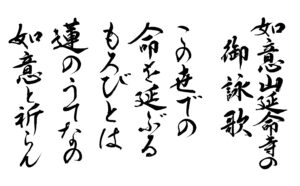 如意山延命寺の
御詠歌
この世での
命を延ぶる
もろびとは
蓮のうてなの
如意と祈らん